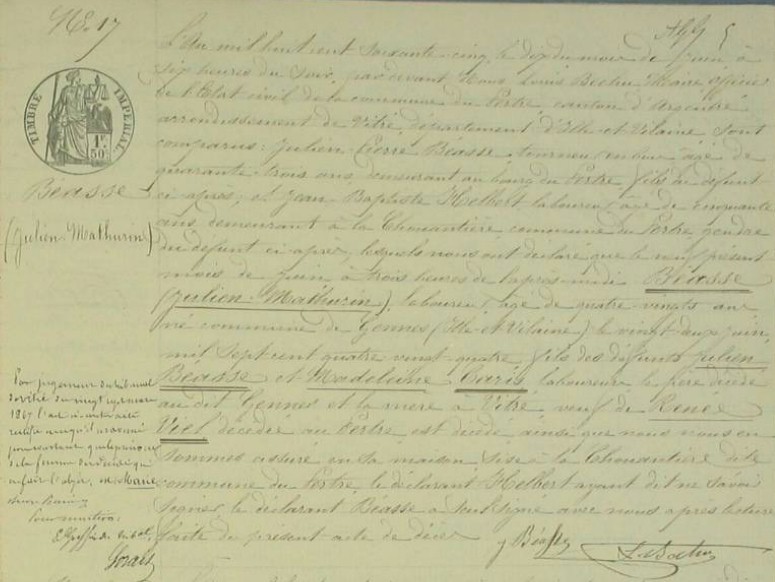 No. 17
L'An mil huit cent soixante-cinq, le dix du mois de juin, à
six heures du soir, par devant Nous Louis Maire officier
de l'Etat civil de la commune du Pertre, canton d'Argentré
arrondissement de Vitré, département d'Ille-et-Vilaine, sont
comparus: Julien Pierre Béasse, tourneur en bois âgé de
quarante-trois ans, demeurant au bourg du Pertre fils du défunt
ci-après, et Jean Baptiste Helbert laboureur, âgé de cinquante
ans demeurant à la Chouantière commune du Pertre gendre
du défunt ci-après, lesquels nous ont déclaré que le neuf présent
mois de juin à trois heures de l'après-midi Béasse
(Julien-Mathurin), laboureur, âgé de quatre-vingts ans
né commune de Gennes (Ille et Vilaine) le vingt-deux juin
mil sept cent quatre vingt-quatre, fils des défunts Julien
Béasse et Madeleine laboureurs le père décédé
au dit Gennes et la mère à Vitré, veuf de Renée
Viel décédée au Pertre, est décédé, ainsi que nous nous en
sommes assuré en sa maison sise à la Chouantière dite
commune du Pertre, le déclarant Helbert ayant dit ne savoir
signer, le déclarant Béasse a seul signé avec nous après lecture
faite du présent acte de décès
J Béasse
TIMBRE IMPERIAL
1F.
50C.
Béasse
(Julien-Mathurin)
Par jugement du tribunal
de Vitré du vingt
1867 l'acte ci-contre a été
rectifié
de la femme du défunt qui
en fait l'objet, Marie